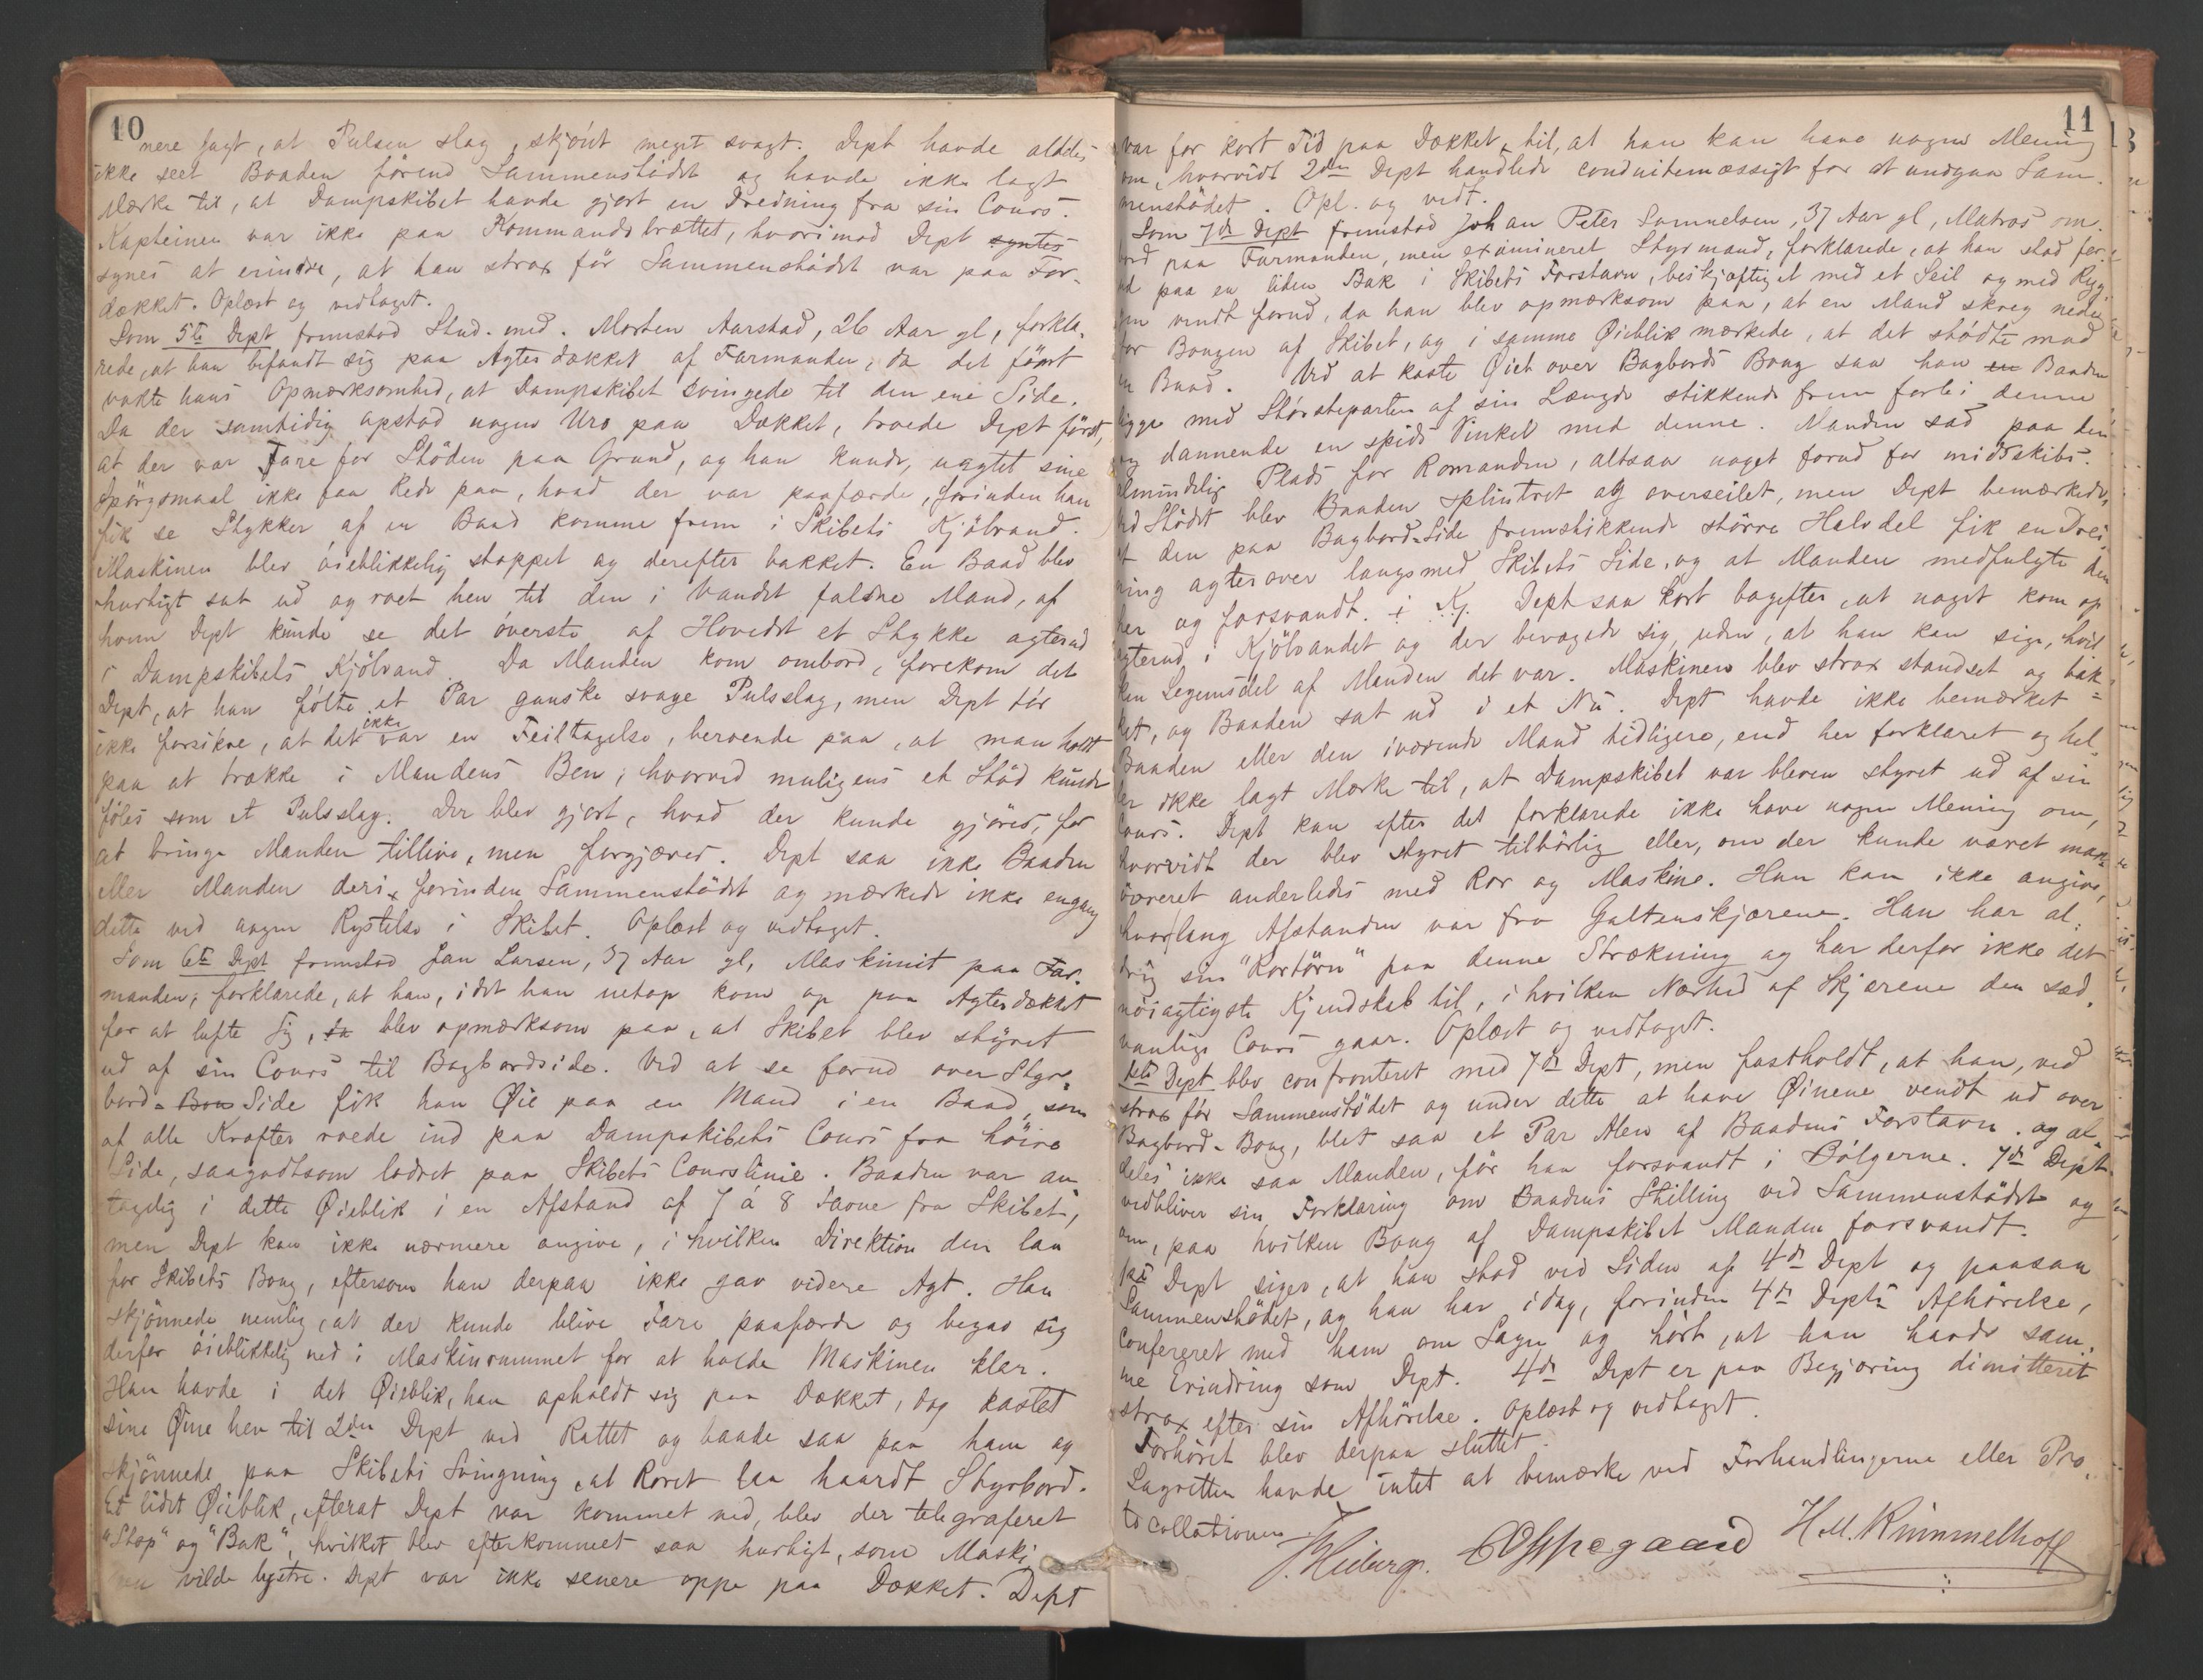 10
nere sagt, at Pulsen slag, skjönt meget svagt. Dept havde aldeles
ikke seet Baaden förend Sammenstödet og havde ikke lagt
Mærke til, at Dampskibet havde gjort en Dredning fra sin Cours.
Kapteinen var ikke paa Kommandobrættet, hvorimod Dept syntes
synes at erindre, at han strax för Sammenstödet var paa For-
dækket. Oplæst og vedtaget.
Som 5te Dept fremstod Stud. med. Morten Aarstad, 26 Aar gl, forkla-
rede, at han befandt sig paa Agterdækket af Farmanden, da det först
vakte hans Opmærksomhed, at Dampskibet svingede til den ene Side.
Da der samtidig opstod nogen Uro paa Dækket, troede Dept först,
at der var Fare for Stöden paa Grund, og han kunde, uagtet sine
Spörgsmaal ikke faa Rede paa, hvad der var paafærde, forinden han
fik se Stykker af en Baad komme frem i Skibets Kjölvand.
Maskinen blev öieblikkelig stoppet og derefter bakket. En Baad blev
hurtigt sat ud og roet hen til den i Vandet faldne Mand, af
hvem Dept kunde se det överste af Hovedet et Stykke agterud
i Dampskibets Kjölvand. Da Manden kom ombord, forekom det
Dept, at han fölte et Par ganske svage Pulsslag, men Dept tör
ikke forsikre, at det ikke var en Feiltagelse, beroende paa, at man holdt
paa at trække i Mandens Ben, hvorved muligens et Stöd kunde
föles som et Pulsslag. Der blev gjort, hvad der kunde gjöres, for
at bringe Manden tillive, men forgjæves. Dept saa ikke Baaden
eller Manden deri forinden Sammenstödet og mærkede ikke engang
dette ved nogen Rystelse i Skibet. Oplæst og vedtaget.
Som 6te Dept fremstod Jan Larsen, 37 Aar gl, Maskinist paa Far-
manden, forklarede, at han, idet han netop kom op paa Agterdækket
for at lufte sig, da blev opmærksom paa, at Skibet blev styret
ud af sin Cours til Bagbordside. Ved at se forud over Styr-
bord- Bou Side fik han Öie paa en Mand i en Baad, som
af alle Kræfter roede ind paa Dampskibets Cours fra höire
Side, saagodtsom lodret paa Skibets Courslinie. Baaden var an-
tagelig i dette Öieblik i en Afstand af 7 á 8 Favne fra Skibet,
men Dept kan ikke nærmere angive, i hvilken Direktion den laa
for Skibets Boug, eftersom han derpaa ikke gav videre Agt. Han
skjönnede nemlig, at der kunde blive Fare paafærde og begav sig
derfor öieblikkelig ned i Maskinrummet for at holde Maskinen klar.
Han havde i det Öieblik, han opholdt sig paa Dækket, dog kastet
sine Öine hen til 2den Dept ved Rattet og baade saa paa ham og
skjönnede paa Skibets Svingning, at Roret laa haardt Styrbord.
Et lidet Öieblik, efterat Dept var kommet ned, blev der telegraferet
"Stop" og "Bak", hvilket blev efterkommet saa hurtigt, som Maski-
nen vilde lystre. Dept var ikke senere oppe paa Dækket. Dept
11
var for kort Tid paa Dækket til, at han kan have nogen Mening
om, hvorvidt 2den Dept handlede conduitemæssigt for at undgaa Sam-
menstödet. Opl. og vedt.
Som 7de Dept fremstod Johan Peter Samuelsen, 37 Aar gl, Matros om-
bord paa Farmanden, men examineret Styrmand, forklarede, at han stod for-
ud paa en liden Bak i Skibets Forstavn, beskjæftiget med et Seil og med Ryg-
gen vendt forud, da han blev opmærksom paa, at en Mand skreg neden-
for Bougen af Skibet, og i samme Öieblik mærkede, at det stödte mod
en Baad. Ved at kaste Öiet over Bagbords Boug saa han en Baaden
ligge med Störsteparten af sin Længde stikkende frem forbi denne
og dannende en spids Vinkel med denne. Manden sad paa den
almindelig Plads for Romanden, altsaa noget forud for midtskibs.
Ved Stödet blev Baaden splintret og overseilet, men Dept bemærkede,
at den paa Bagbord-Side fremstikkende större Halvdel fik en Drei-
ning agterover langsmed Skibets Side, og at Manden medfulgte den
her og forsvandt. i Kj. Dept saa kort bagefter, at noget kom op
agterud i Kjölvandet og der bevægede sig, uden, at han kan sige, hvil-
ken Legemsdel af Manden det var. Maskinen blev strax standset og bak-
ket, og Baaden sat ud i et Nu. Dept havde ikke bemærket
Baaden eller den iværende Mand tidligere, end her forklaret og hel-
ler ikke lagt Mærke til, at Dampskibet var bleven styret ud af sin
Cours. Dept kan efter det forklarede ikke have nogen Mening om,
hvorvidt der blev styret tilbörlig eller, om der kunde været manö-
vreret anderledes med Ror og Maskine. Han kan ikke angive,
hvor lang Afstanden var fra Galtenskjærene. Han har al-
drig sin "Rortörn" paa denne Strækning og har derfor ikke det
nöiagtigste Kjendskab til, i hvilken Nærhed af Skjærene den sæd-
vanlige Cours gaar. Oplæst og vedtaget.
Dept blev confronteret med 7de Dept, men fastholdt, at han, ved
strax för Sammenstödet og under dette at have Öinene vendt ud over
Bagbord-Boug, blot saa et Par Alen af Baadens Forstavn, og al-
deles ikke saa Manden, för han forsvandt i Bölgerne. 7de Dept
vedbliver sin Forklaring om Baadens Stilling ved Sammenstödet og
om, paa hvilken Boug af Dampskibet Manden forsvandt.
1ste Dept siger, at han stod ved Siden af 4de Dept og paasaa
Sammenstödet, og han har idag, forinden 4de Depts Afhörelse,
confereret med ham om Sagen og hört, at han havde sam-
me Erindring som Dept. 4de Dept er paa Begjæring dimitteret
strax efter sin Afhörelse. Oplæst og vedtaget.
Forhöret blev derpaa sluttet.
Lagretten havde intet at bemærke ved Forhandlingerne eller Pro-
tocollationen.
Oppegaard H.M. Rummelhoff